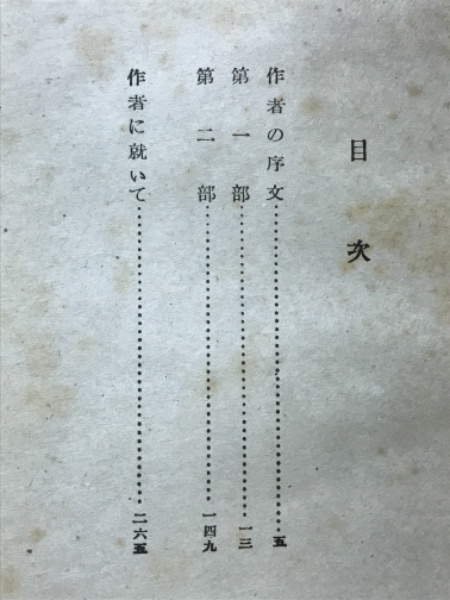 目次
作者の序文……………………………五
第一部……………………………一三
第二部……………………………一四九
作者に就いて……………………………二六五